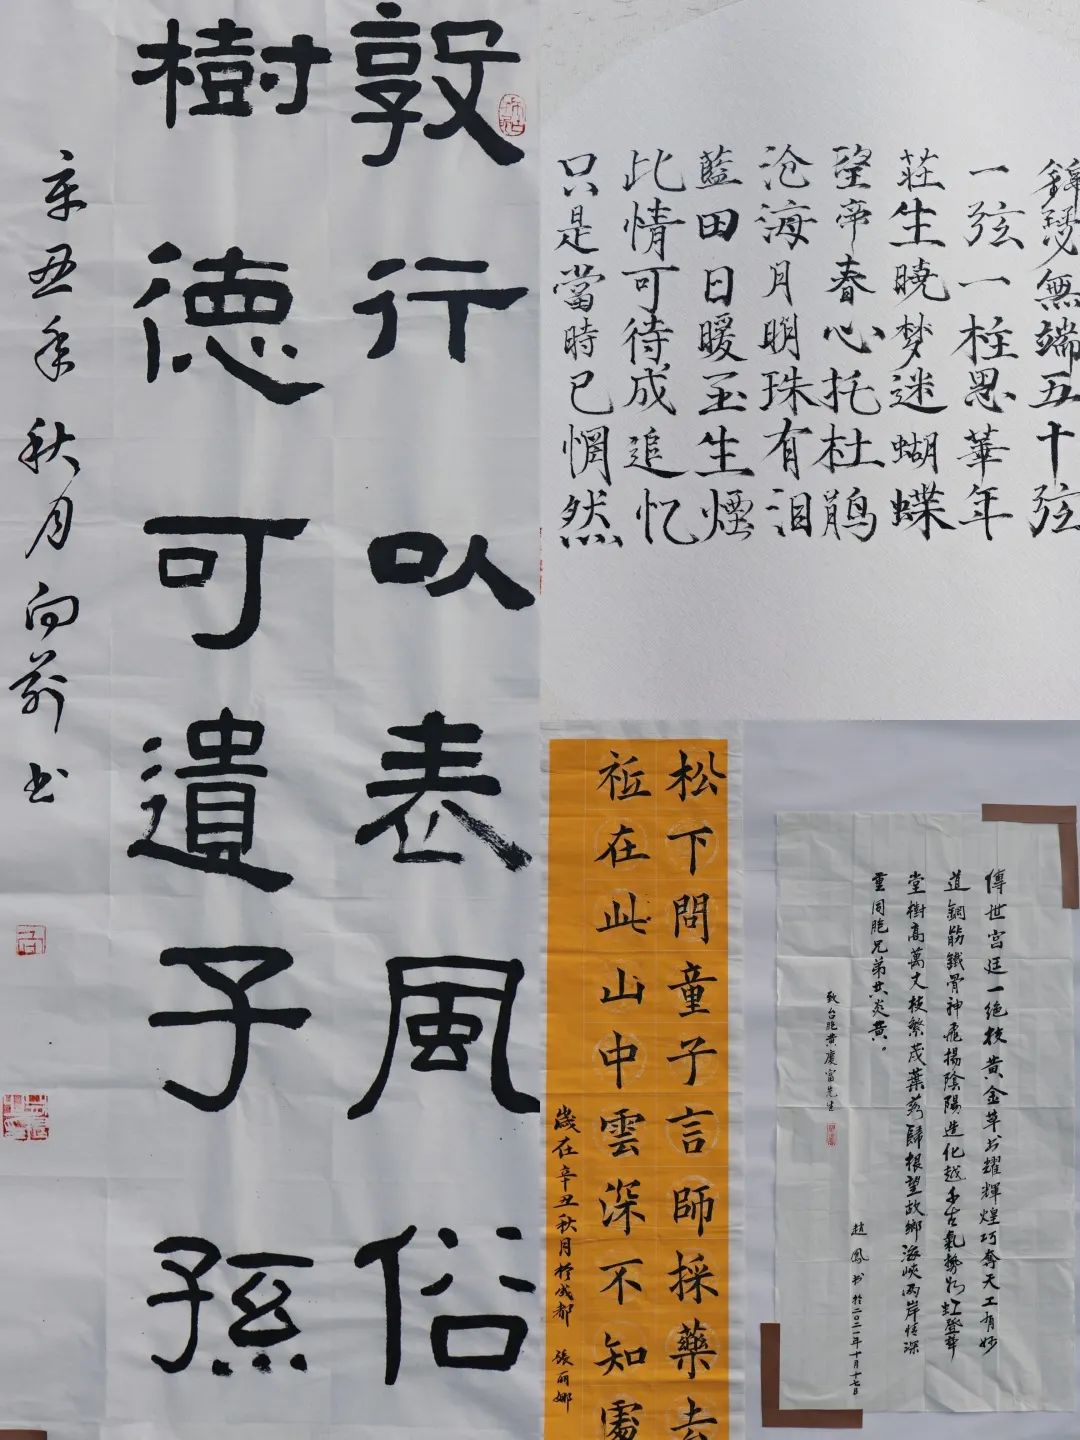 敦行以表風俗
樹德可遺子孫
辛丑年秋月向前书
錦瑟無端五十弦
一弦一柱思華年
莊生曉梦迷蝴蝶
望帝春心托杜鹃
沧海月明珠有泪
藍田日暖玉生煙
此情可待成追忆
只是當時已惘然
松下問童子言師採藥去
祗在此山中雲深不知處
歲在辛丑秋月於成都 張丽娜
傳世宫廷一絶技黄金草书耀輝煌巧奪天工有妙
道鋼筋鐵骨神飛揚陰陽造化越千古氣勢如虹登華
堂樹高萬丈枝繁茂葉落歸根望故鄉海峽两岸情深
重同胞兄弟共炎黄。
致台胞黄慶富先生
趙鳳书於二〇二一年十月十七日